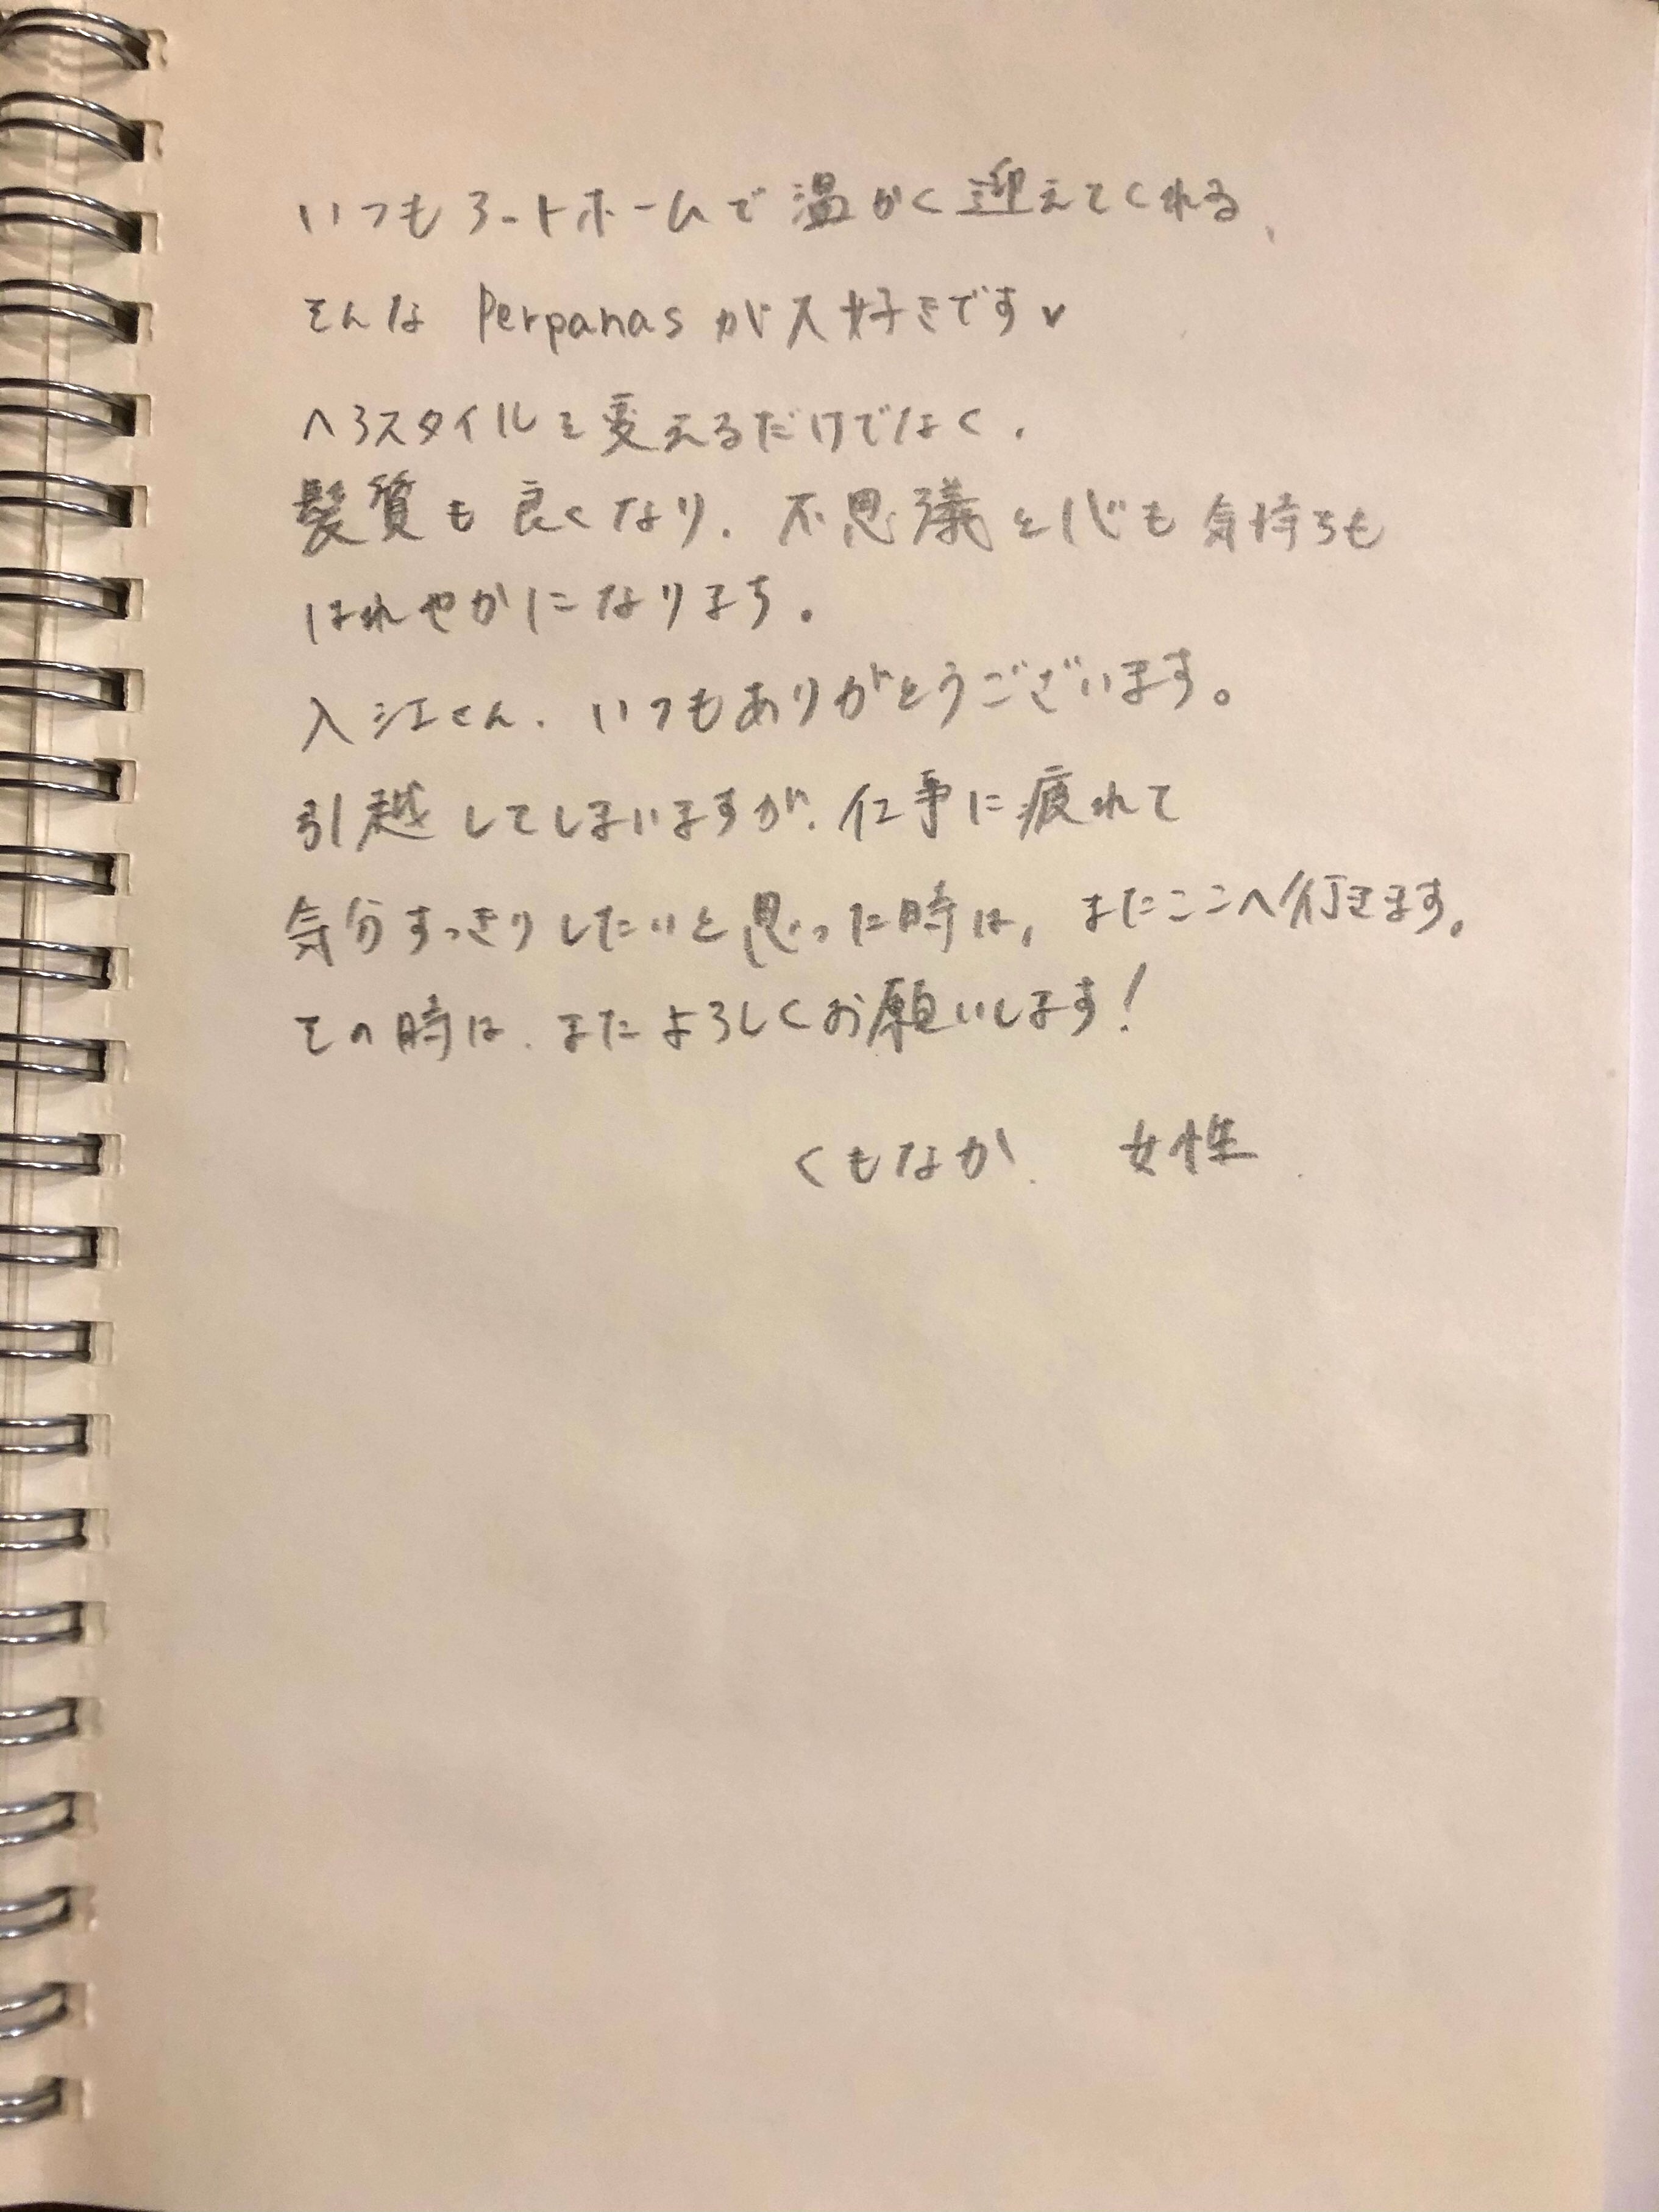 いつもアートホームで温かく迎えてくれる、
そんな Perpanas が大好きです♥
ヘアスタイルを変えるだけでなく、
髪質も良くなり、不思議と心も気持ちも
はれやかになります。
入江さん、いつもありがとうございます。
引越してしまいますが、仕事に疲れて
気分すっきりしたいと思った時は、またここへ行きます。
その時は、またよろしくお願いします！
くもなか 女性